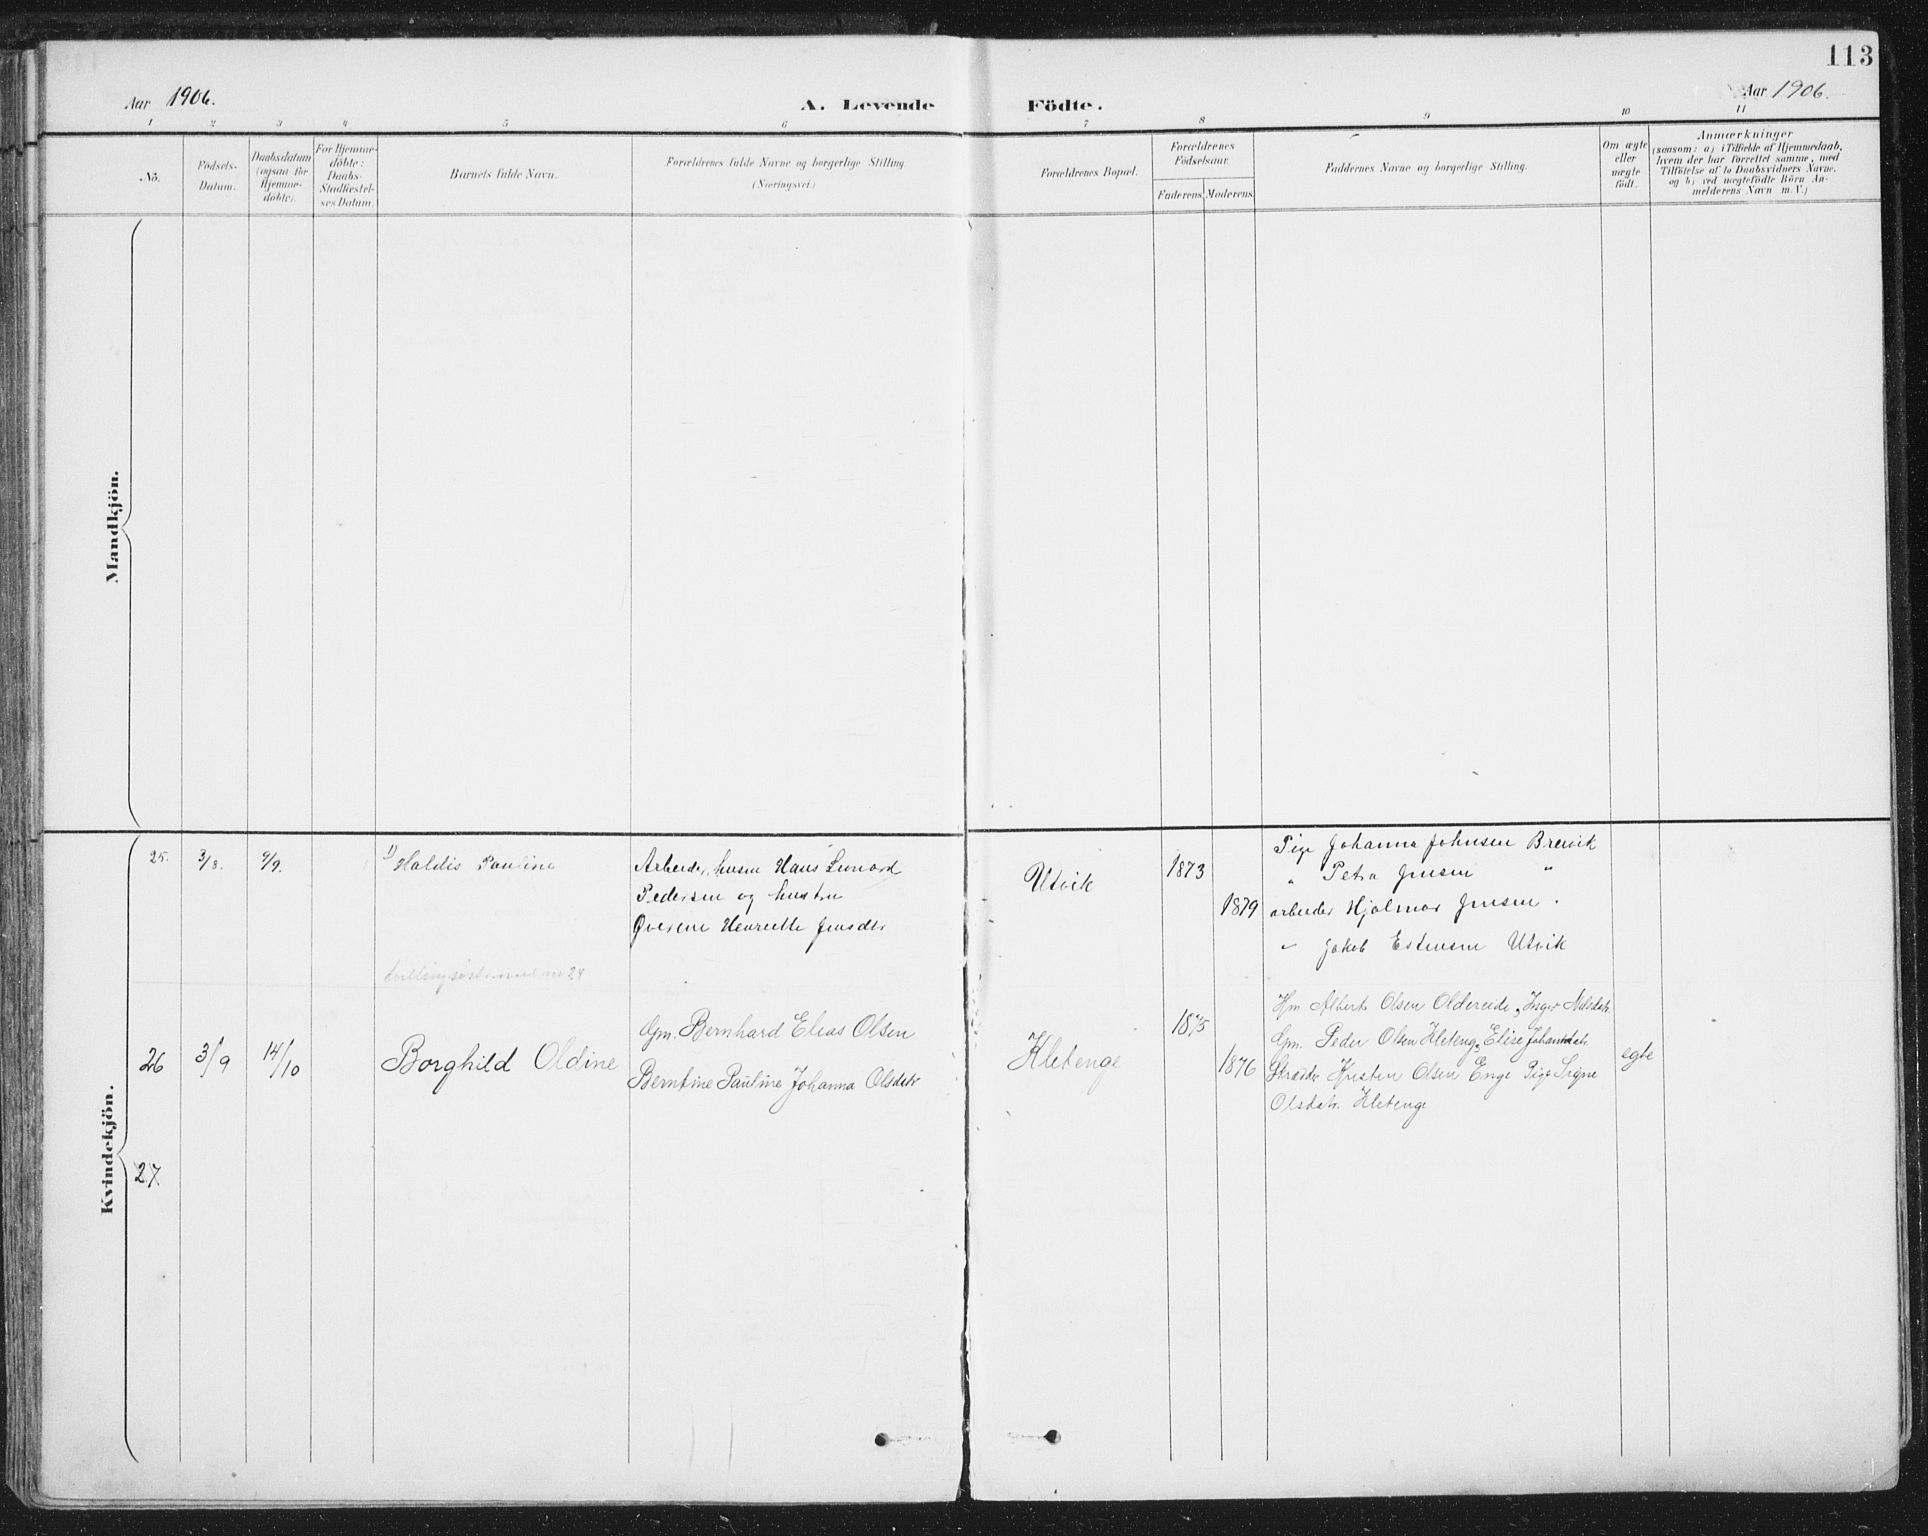 113
Aar 1906.
A. Levende Födte.
Aar 1906.
1 2 3 4 5 6 7 8 9 10 11
No.
Födsels-
Datum.
Daabsdatum
(ogsaa for
Hjemme-
döbte).
For Hjemme-
döbte:
Daabs-
Stadfæstel-
ses Datum.
Barnets fulde Navn.
Forældrenes fulde Navne og borgerlige Stilling
(Næringsvei.)
Forældrenes Bopæl.
Forældrenes
Födselsaar.
Faderens. Moderens.
Faddernes Navne og borgerlige Stilling.
Om ægte
eller
uægte
födt.
Anmærkninger
(saasom: a) i Tilfælde af Hjemmedaab,
hvem der har forrettet samme, med
Tilföielse af to Daabsvidners Navne,
og b) ved uægtefödte Börn An-
melderens Navn m. V.)
Mandkjön.
Kvindekjön.
25. 3/8. 9/9.
1) Haldis Pauline
Arbeider, husm Hans Lenard
Pedersen og hustru
Overine Henriette Jensdtr
Utvik
1873
1879
Pige Johanna Johnsen Brevik
" Petra Jensen "
arbeider Hjalmar Jensen "
" Jakob Estensen Utvik
26 3/9 14/10
Borghild Oldine
Gm. Bernhard Elias Olsen
Berntine Pauline Johanna Olsdatr
Kletenge
1875
1876
Hm Albert Olsen Oldereide, Inger Nilsdatr.
Gm. Peder Olsen Kletenge, Elise Johansdatr.
Skrædder Kristen Olsen Enge Pige Signe
Olsdatr. Kletenge
egte
27